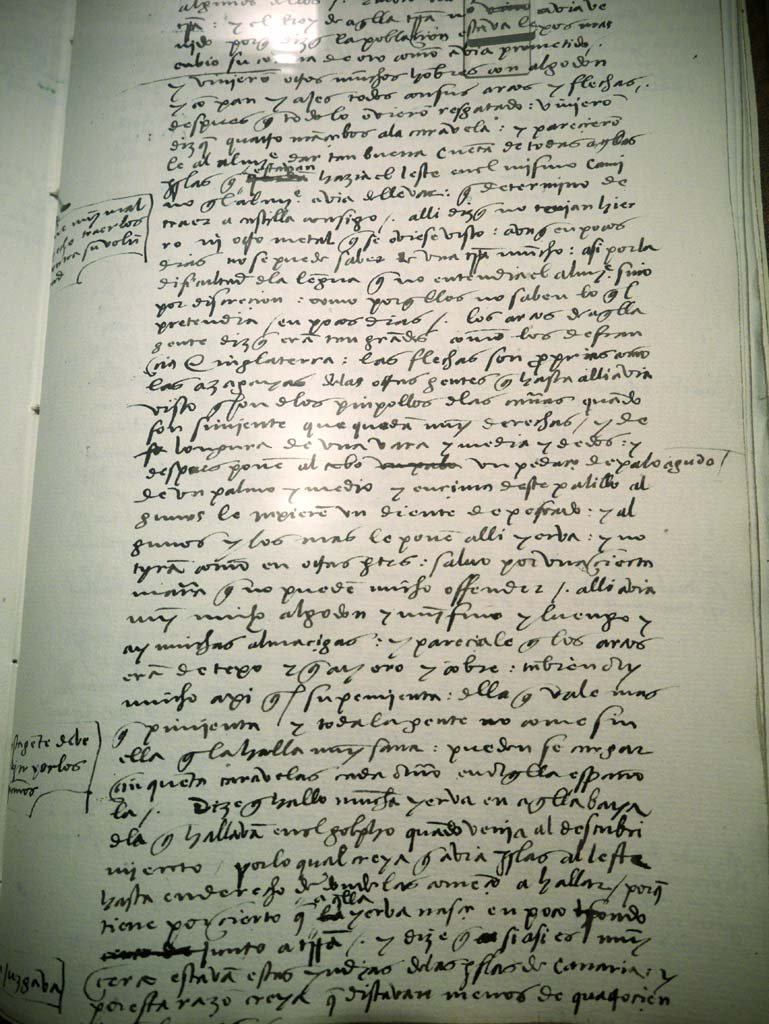 trrã : y el Rey de aq̃lla trrã no avia ve
nido porq̃ dizq̃ la poblaçion estava lexos mas
enbio su corona de oro como avia prometido
y vinierõ otros muchos hõbres con algodon
y cõ pan y ajes todos con sus arcos y flechas /.
despues q̃ todo lo ovierõ resgatado : vinierõ
dizq̃ quatro mãçebos a la caravela : y pareçierõ
le al almiᵉ dar tan buena cuenta de todas aq̃llas
yslas q̃ estavan hazia el leste en el mismo cami
no q̃l almiᵉ avia de llevar : q̃ determino de
traer a castilla consigo /. alli dizq̃ no tenian hier
ro ni otro metal q̃ se oviese visto : aunq̃ en pocos
dias no se puede saber de una trrã mucho : asi por la
dificultad de la lengua q̃ no entendia el almiᵉ sino
por discreçion : como porq̃llos no saben lo q̃l
pretendia / en pocos dias /. los arcos de aq̃lla
gente dizq̃ erã tan grãdes como los de fran
çia e inglaterra : las flechas son proprias como
las azagayas de las otras gentes q̃ hasta alli avia
visto q̃ son de los pinpollos de las cañas quãdo
son simiente que quedã muy derechas / y de
longura de una vara y media y de dos : y
despues ponẽ al cabo un pedaço de palo agudo /
de un palmo y medio y encima deste palillo al
gunos le inxierẽ un diente de pescado : y al
gunos y los mas le ponẽ alli yerva : y no
tirã como en otras p̃tes : salvo por una çierta
manrã q̃ no puedẽ mucho offender /. alli avia
muy mucho algodon y muy fino y luengo y
ay muchas almaçigas : y pareçiale q̃ los arcos
erã de texo y q̃ ay oro y cobre : tãbien ay
mucho axi q̃s su pimienta : della q̃ vale mas
q̃ pimienta y toda la gente no come sin
ella q̃ la halla muy sana : pueden se cargar
çinquẽta caravelas cada año en aq̃lla espano
la /. Dize q̃ hallo mucha yerva en aq̃lla baya
de la q̃ hallavã en el golpho quãdo venia al descubri
miento / por lo qual creya q̃ avia yslas al leste
hasta en derecho de donde las comẽço a hallar / porq̃
tiene por çierto q̃ aq̃lla yerva naçe en poco fondo
junto a trrã /. y dize q̃ si asi es muy
çerca estavã estas yndias de las yslas de Canaria : y
por esta razõ creya q̃ distavan menos de quatroçien
muy mal
traerlos
contra su volũ
tad
juzgava